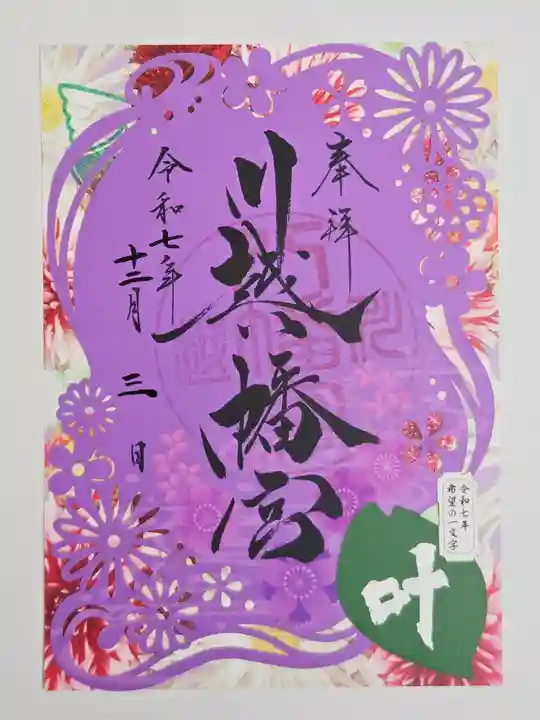 奉拝
川越八幡宮
令和七年
十二月 三 日
令和七年
希望の一文字
叶